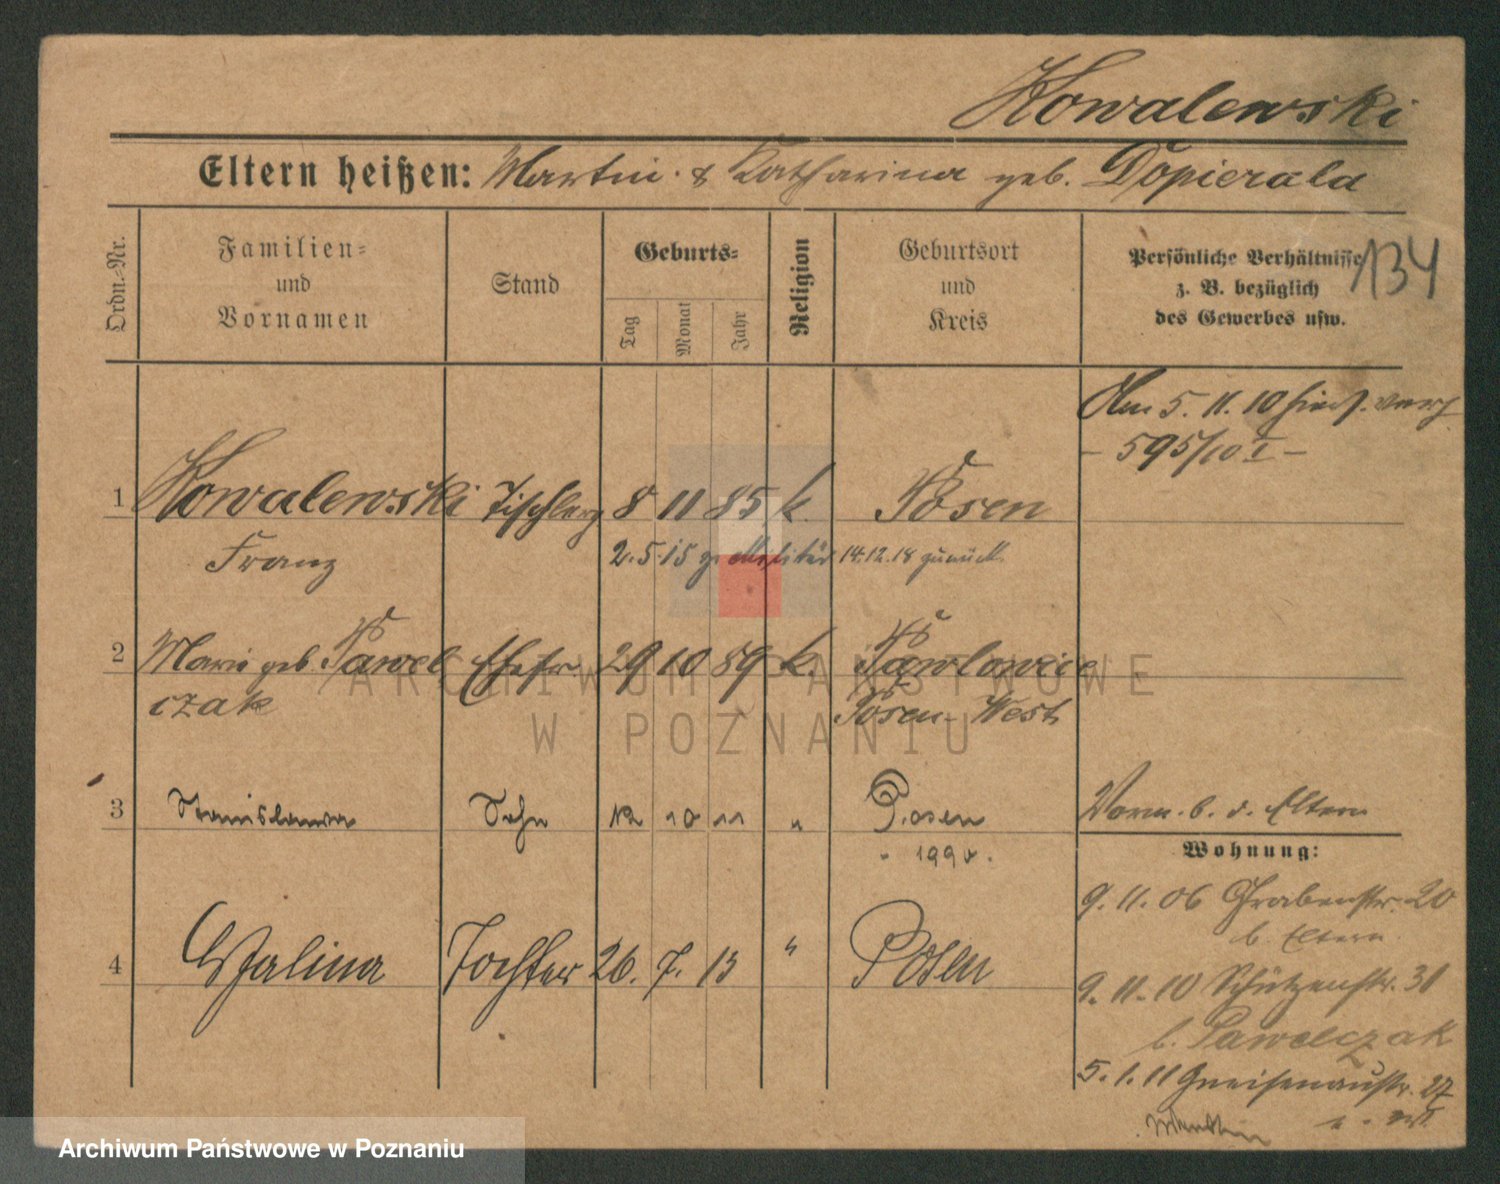 Kowalewski
Eltern heißen: Martin & Katharina geb. Dopierala
Ordn.-Nr.
Familien-
und
Vornamen
Stand
Geburts-
Tag
Monat
Jahr
Religion
Geburtsort
und
Kreis
Persönliche Verhältnisse
z. B. bezüglich
des Gewerbes usw.
134
Am 5. 11. 10 hies. verh
- 595/10 I -
1 Kowalewski Tischlerg 8 11 85 k. Posen
Franz 2. 5. 15 z. Militär 14.12.18 zurück
2 Marie geb. Pawel Ehefr. 29 10 89 k. Pawlowice
czak Posen West
3 Stanislaus Sohn 12 10 11 " Posen
Vorm. b. d. Eltern
Wohnung:
9. 11. 06 Grabenstr. 20
b. Eltern
4 Halina Tochter 26. 7. 13 " Posen
9. 11. 10 Schützenstr. 31
b. Pawelczak
5. 1. 11 Gneisenaustr. 27
ARCHIWUM PAŃSTWOWE
W POZNANIU
Archiwum Państwowe w Poznaniu